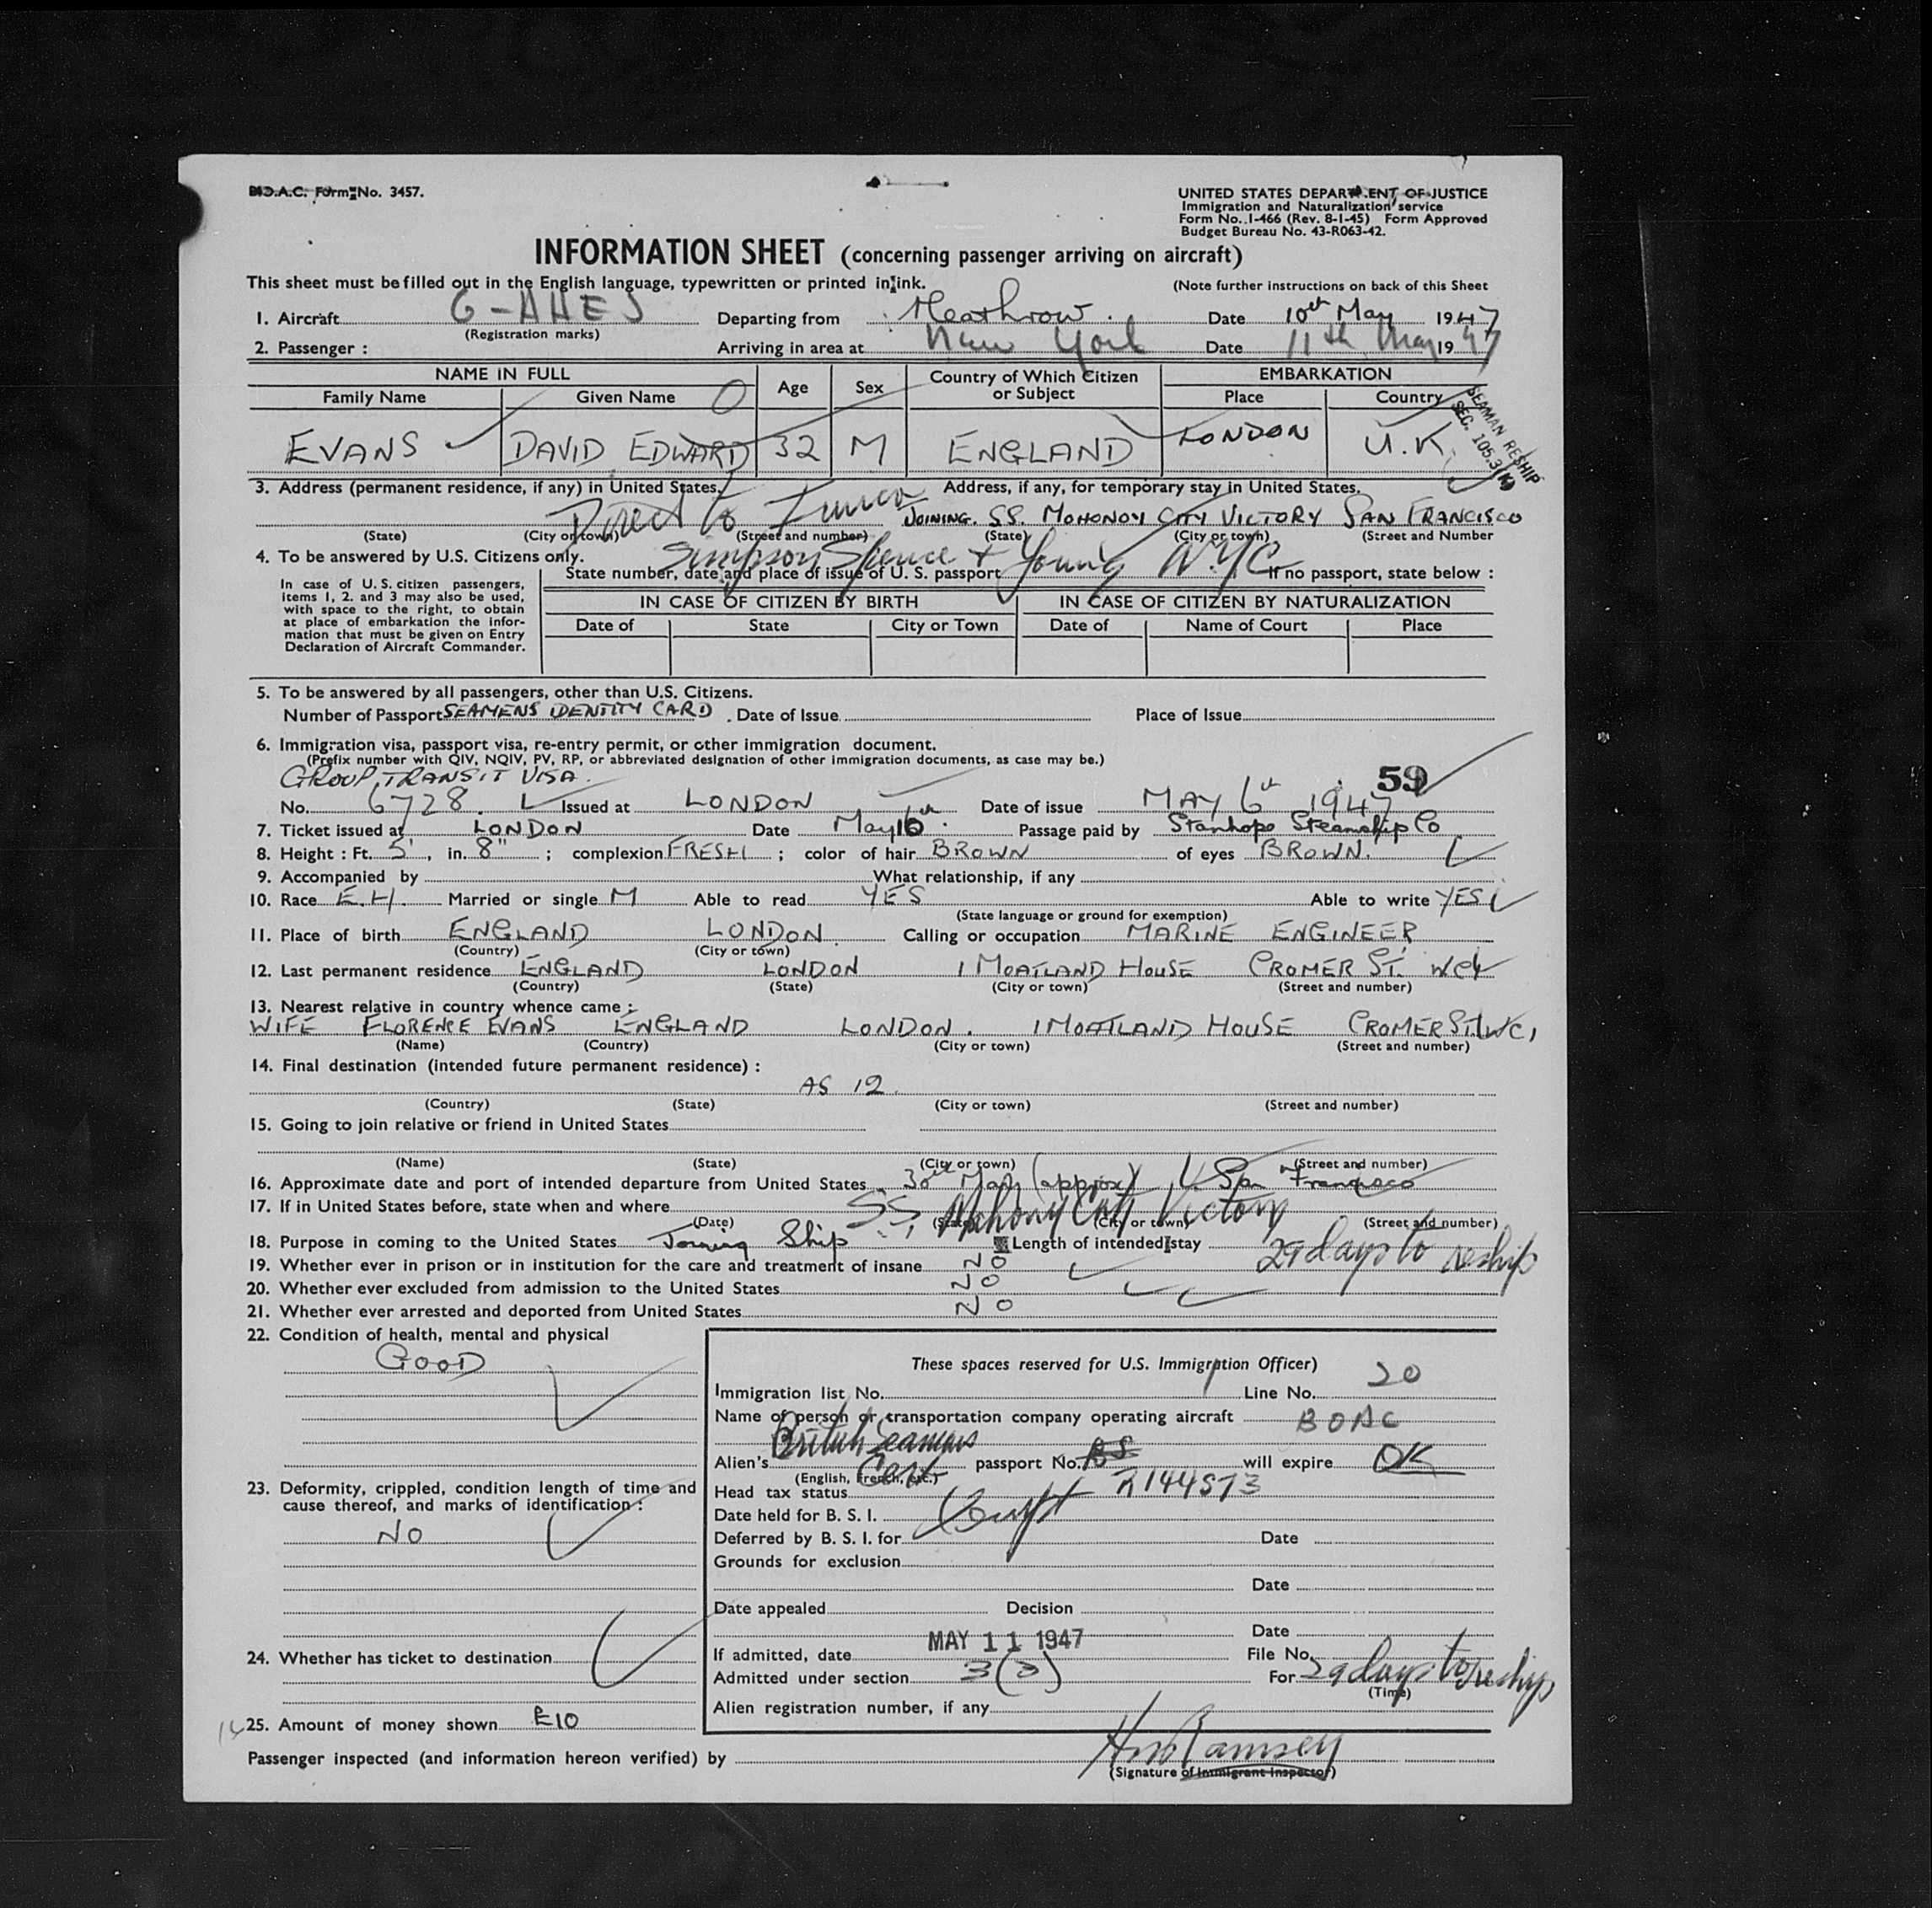 B.O.A.C. Form No. 3457.
UNITED STATES DEPARTMENT OF JUSTICE
Immigration and Naturalization service
Form No. I-466 (Rev. 8-1-45) Form Approved
Budget Bureau No. 43-R063-42.
INFORMATION SHEET (concerning passenger arriving on aircraft)
This sheet must be filled out in the English language, typewritten or printed in ink. (Note further instructions on back of this Sheet
1. Aircraft G-AHEJ Departing from Heathrow. Date 10th May 1947
(Registration marks)
2. Passenger : Arriving in area at New York Date 11th May 1947
NAME IN FULL Age Sex Country of Which Citizen or Subject EMBARKATION
Family Name Given Name Place Country
EVANS DAVID EDWARD 32 M ENGLAND LONDON U.K.
SEAMAN RESHIP
SEC. 105.3
3. Address (permanent residence, if any) in United States, Address, if any, for temporary stay in United States.
Direct to JOINING. SS. MOHONOY CITY VICTORY SAN FRANCISCO
(State) (City or town) (Street and number) (State) (City or town) (Street and Number
4. To be answered by U.S. Citizens only. Simpson Spence + Young N.Y.C.
In case of U.S. citizen passengers, items 1, 2. and 3 may also be used, with space to the right, to obtain at place of embarkation the information that must be given on Entry Declaration of Aircraft Commander.
State number, date and place of issue of U. S. passport If no passport, state below :
IN CASE OF CITIZEN BY BIRTH IN CASE OF CITIZEN BY NATURALIZATION
Date of State City or Town Date of Name of Court Place
5. To be answered by all passengers, other than U.S. Citizens.
Number of Passport SEAMENS IDENTITY CARD . Date of Issue Place of Issue
6. Immigration visa, passport visa, re-entry permit, or other immigration document.
(Prefix number with QIV, NQIV, PV, RP, or abbreviated designation of other immigration documents, as case may be.)
GROUP TRANSIT VISA. 59
No. 6728. Issued at LONDON Date of issue MAY 6th 1947
7. Ticket issued at LONDON Date May 16th. Passage paid by Stanhope Steamship Co
8. Height : Ft. 5', in. 8" ; complexion FRESH ; color of hair BROWN of eyes BROWN.
9. Accompanied by What relationship, if any
10. Race E.H. Married or single M Able to read YES Able to write YES
(State language or ground for exemption)
11. Place of birth ENGLAND LONDON. Calling or occupation MARINE ENGINEER
(Country) (City or town)
12. Last permanent residence ENGLAND LONDON 1 MOATLAND HOUSE CROMER ST. WC1
(Country) (State) (City or town) (Street and number)
13. Nearest relative in country whence came :
WIFE FLORENCE EVANS ENGLAND LONDON. 1 MOATLAND HOUSE CROMER ST. WC1
(Name) (Country) (City or town) (Street and number)
14. Final destination (intended future permanent residence) :
AS 12.
(Country) (State) (City or town) (Street and number)
15. Going to join relative or friend in United States
(Name) (State) (City or town) (Street and number)
16. Approximate date and port of intended departure from United States 30th May (approx) San Francisco
17. If in United States before, state when and where SS Mahony City Victory
(Date) (State) (City or town) (Street and number)
18. Purpose in coming to the United States Joining Ship Length of intended stay 29 days to reship
19. Whether ever in prison or in institution for the care and treatment of insane NO
20. Whether ever excluded from admission to the United States NO
21. Whether ever arrested and deported from United States NO
22. Condition of health, mental and physical
GOOD
23. Deformity, crippled, condition length of time and cause thereof, and marks of identification :
NO
24. Whether has ticket to destination
25. Amount of money shown £10
These spaces reserved for U.S. Immigration Officer)
Immigration list No. Line No. 20
Name of person or transportation company operating aircraft BOAC
British Seamans
Alien's Card passport No. BS will expire OK
(English, French, etc.) R144573
Head tax status Exempt
Date held for B. S. I.
Deferred by B. S. I. for Date
Grounds for exclusion
Date
Date appealed Decision
Date
If admitted, date MAY 11 1947 File No.
Admitted under section 3(3) For 29 days to reship
(Time)
Alien registration number, if any
Passenger inspected (and information hereon verified) by Ramsey
(Signature of Immigrant Inspector)